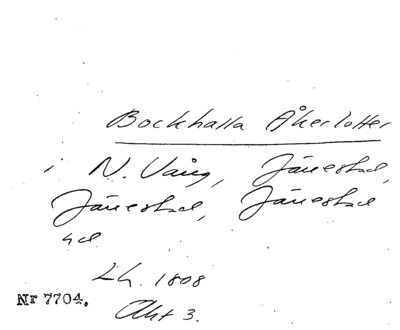 Bockhalla Åkerlotter
i N. Vång, Jänestad,
Jänestad, Jänestad
hd
Lh. 1808
Nr 7704.
Akt 3.